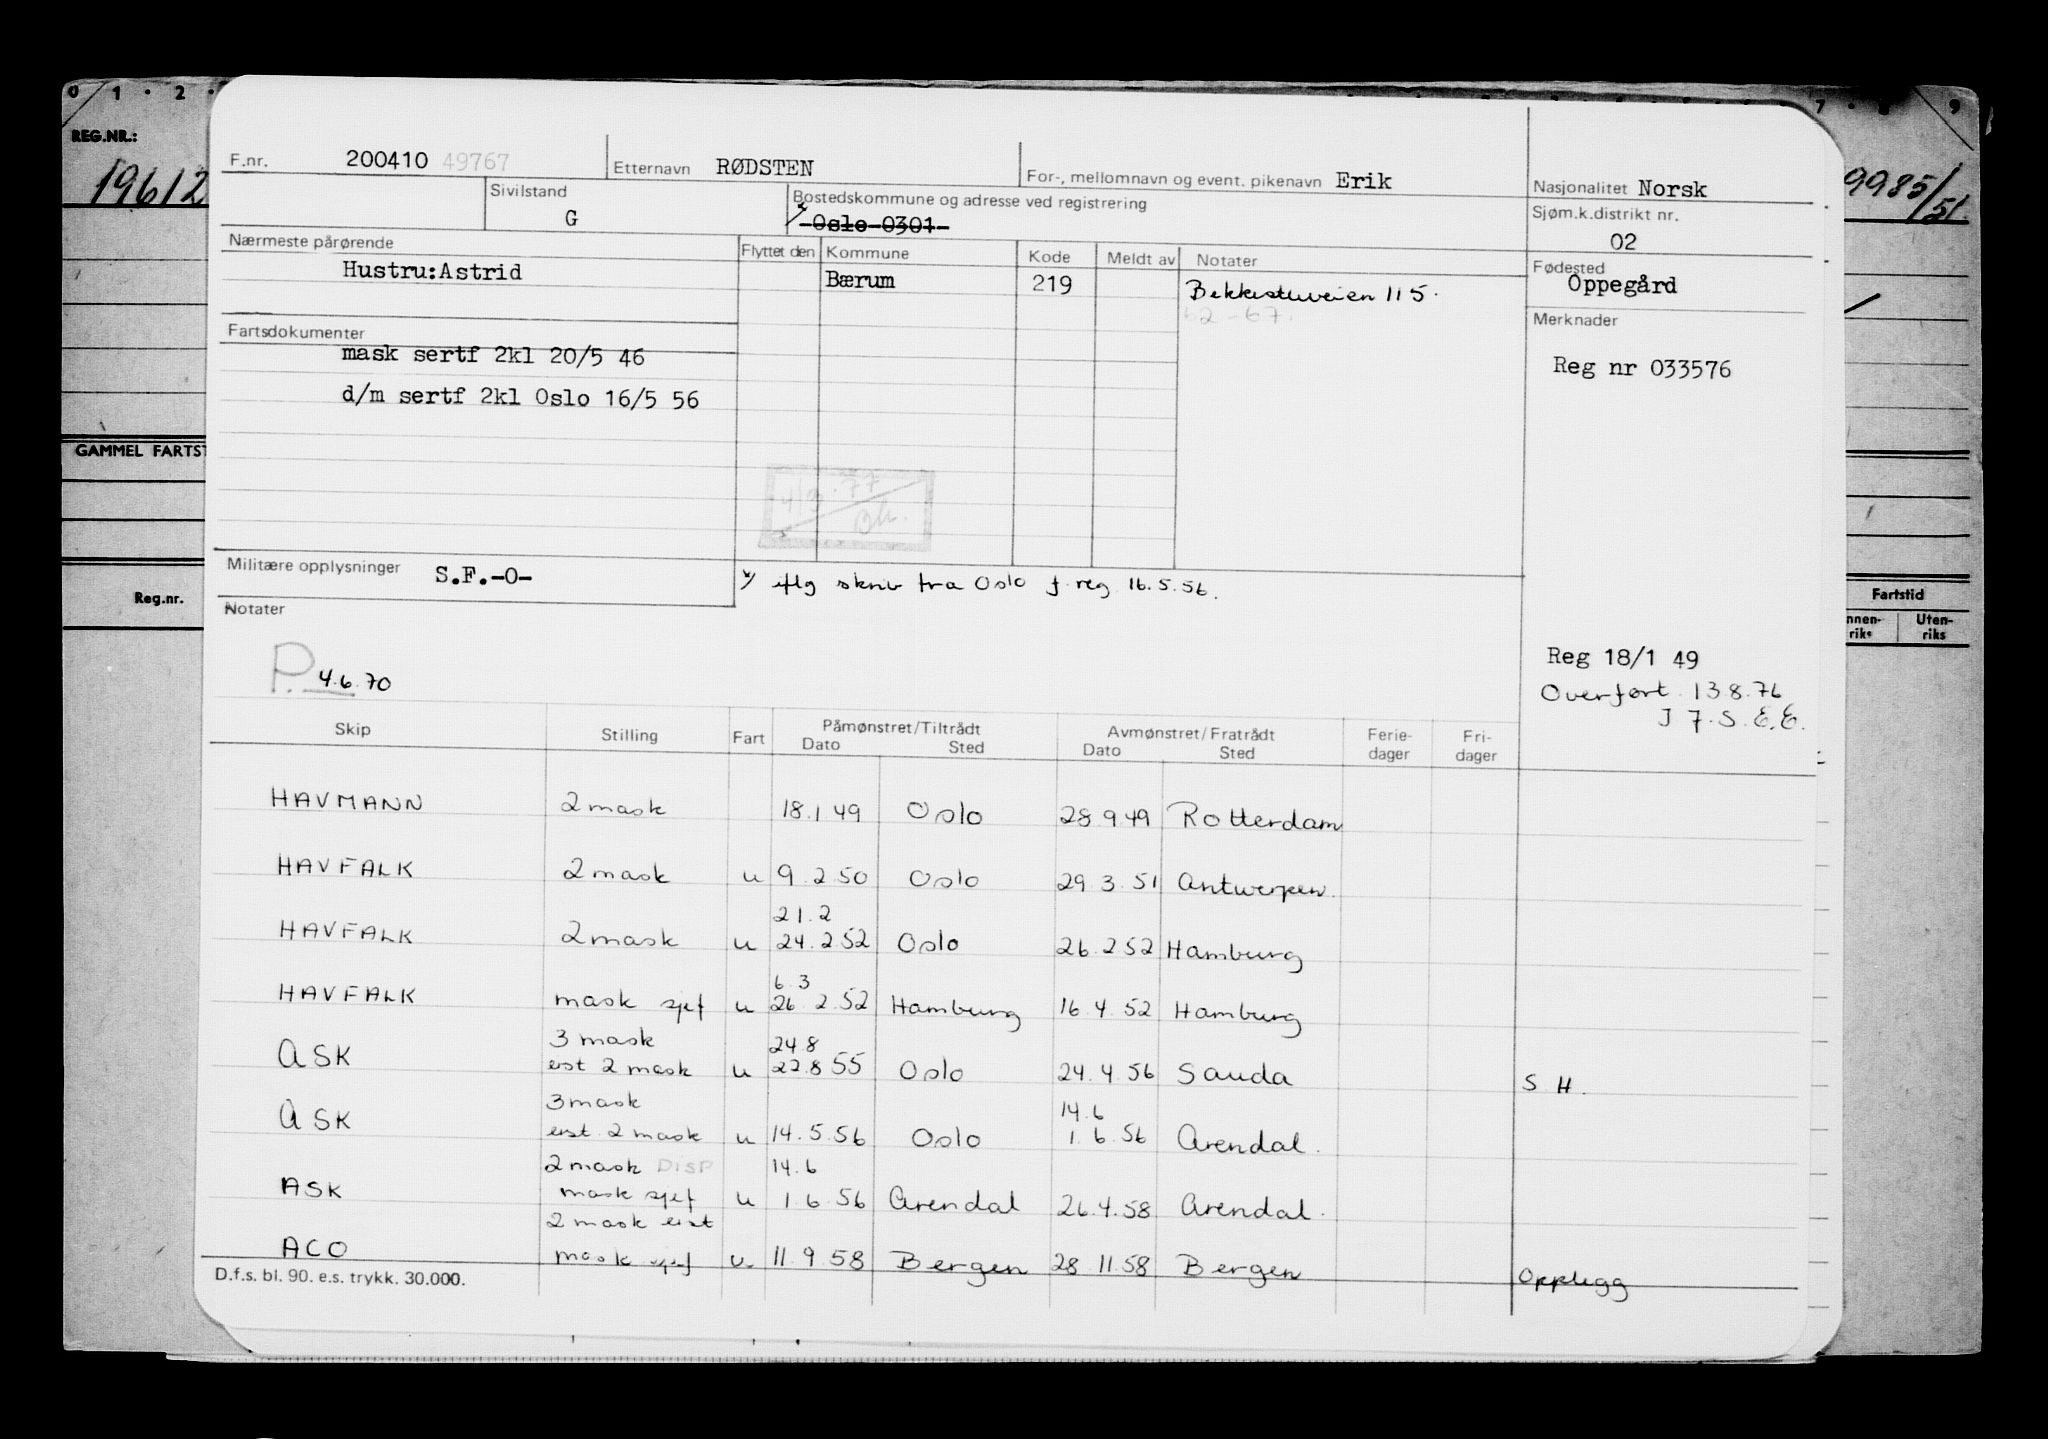 0 1 2 7 8 9
REG.NR.:
19612
9985/51
GAMMEL FARTST
Reg.nr.
Fartstid
nnen-riks Uten-riks
F.nr. 200410 49767 Etternavn RØDSTEN For-, mellomnavn og event. pikenavn Erik Nasjonalitet Norsk
Sivilstand G Bostedskommune og adresse ved registrering Oslo 0301 Sjøm.k.distrikt nr. 02
Nærmeste pårørende Flyttet den Kommune Kode Meldt av Notater Fødested
Hustru:Astrid Bærum 219 Bekkestuveien 115. Oppegård
62-67.
Fartsdokumenter Merknader
mask sertf 2kl 20/5 46 Reg nr 033576
d/m sertf 2kl Oslo 16/5 56
4/3.77
Militære opplysninger S.F.-0-
iflg skriv fra Oslo f.reg 16.5.56.
Notater
P. 4.6.70
Reg 18/1 49
Overført 13.8.76
I 7.S.E.E.
Skip Stilling Fart Påmønstret/Tiltrådt Avmønstret/Fratrådt Ferie-dager Fri-dager
Dato Sted Dato Sted
HAVMANN 2 mask 18.1 49 Oslo 28 9 49 Rotterdam
HAVFALK 2 mask u 9.2.50 Oslo 29.3.51 Antwerpen.
21.2
HAVFALK 2 mask u 24.2 52 Oslo 26.2 52 Hamburg
6.3
HAVFALK mask sjef u 26.2.52 Hamburg 16.4.52 Hamburg
3 mask 24 8
ASK erst 2 mask u 22.8 55 Oslo 24.4.56 Sauda S H.
3 mask 14.6
ASK erst. 2 mask u 14.5.56 Oslo 1.6.56 Arendal.
2 mask DISP 14.6
ASK mask sjef u 1.6 56 Arendal 26.4.58 Arendal.
2 mask erst
ACO mask sjef u. 11.9.58 Bergen 28.11.58 Bergen Opplegg
D.f.s. bl. 90. e.s. trykk. 30.000.